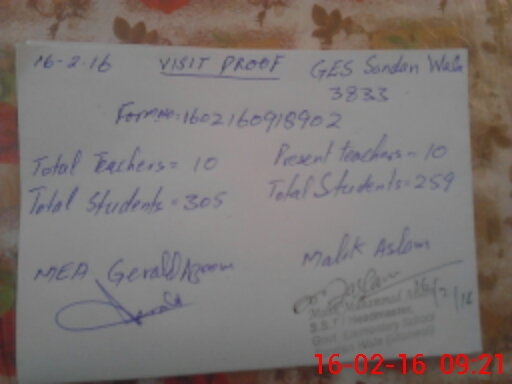 16-2-16 VISIT PROOF GES Sandan Wala
3833
Form no: 1602160918902
Total Teachers = 10 Present teachers = 10
Total Students = 305 Total Students = 259
MEA Gerald Azeem Malik Aslam
16/2/16
Malik Muhammad
S.S.T / Headmaster,
Govt. Elementary School
16-02-16 09:21